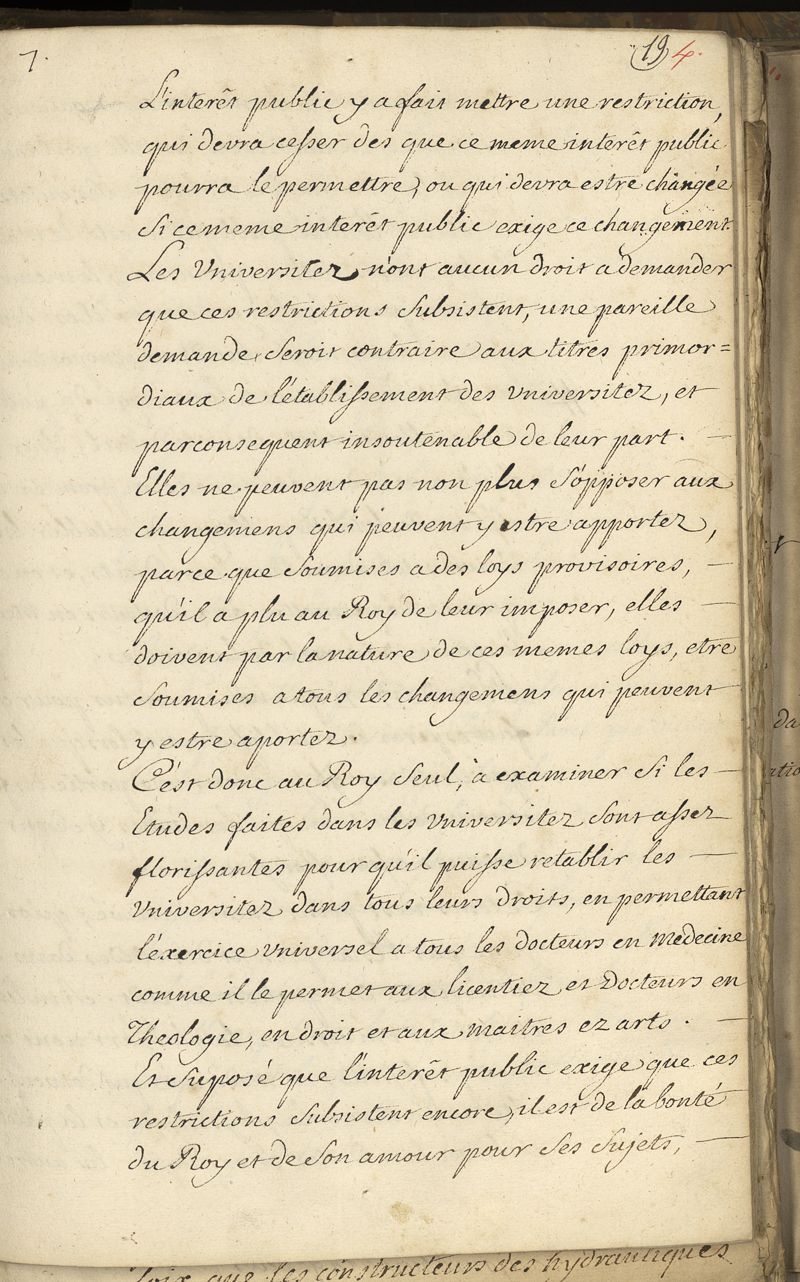 7.
19 4.
L'interêt public y a fait mettre une restriction,
qui devra cesser des que ce meme interêt public
pourra le permettre, ou qui devra estre changée
si ce meme interêt public exige ce changement.
Les Vniversitez n'ont aucun droit a demander
que ces restrictions subsistent, une pareille
demande seroit contraire aux titres primor=
diaux de l'établissement des Vniversitez, et
parconsequent insoutenable de leur part. —
Elles ne peuvent pas non plus s'opposer aux
changemens qui peuvent y estre apportez,
parce que soumises a des loys provisoires, —
qu'il a plu au Roy de leur imposer, elles —
doivent par la nature de ces memes loys, etre
soumises a tous les changemens qui peuvent
y estre aportez.
C'est donc au Roy seul, à examiner si les —
Etudes faites dans les Vniversitez sont assez
florissantes pour qu'il puisse retablir les —
Vniversitez dans tous leurs droits, en permettant
l'éxercice Vniversel a tous les docteurs en Medecine
comme il le permet aux licentiez et Docteurs en
Theologie, en droit et aux maitres ez arts. —
Et suposé que l'interêt public exige que ces
restrictions subsistent encore, il est de la bonté
du Roy et de son amour pour ses sujets, —
que les constructeurs des hydrauliques